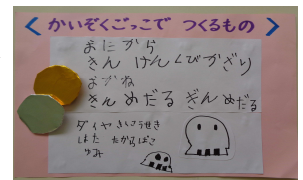 かいぞくごっこで つくるもの
おにから
きん けん くびかざり
おかね
きん めだる ぎん めだる
ダイヤ
はた たからばこ
ゆみ